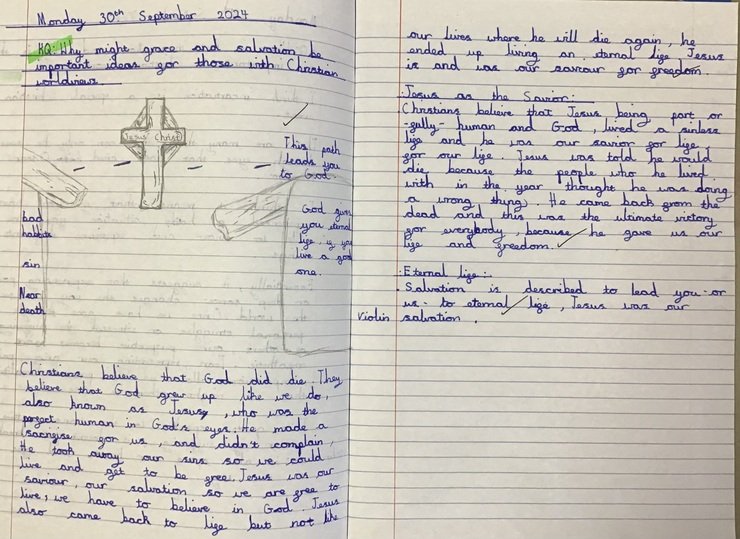 Monday 30th September 2024
KQ: Why might grace and salvation be
important ideas for those with Christian
worldviews.
Jesus Christ
This path
leads you
to God.
God gives
you eternal
life, if you
live a good
one.
bad
habbits
sin
Near
death
Christians believe that God did die. They
believe that God grew up like we do,
also known as Jesus, who was the
perfect human in God's eyes. He made a
sacrifise for us, and didn't complain,
He took away our sins so we could
live and get to be free. Jesus was our
saviour, our salvation so we are free to
live, we have to believe in God. Jesus
also came back to life but not like
our lives where he will die again, he
ended up living an eternal life. Jesus
is and was our saviour for freedom.
Jesus as the Savior:
Christians believe that Jesus being part or
-fully- human and God, lived a sinless
life and he was our savior for life,
for our life. Jesus was told he would
die because the people who he lived
with in the year thought he was doing
a wrong thing. He came back from the
dead and this was the ultimate victory
for everybody, because he gave us our
life and freedom.
:Eternal life:.
Salvation is described to lead you -or
us- to eternal life, Jesus was our
Violin salvation.